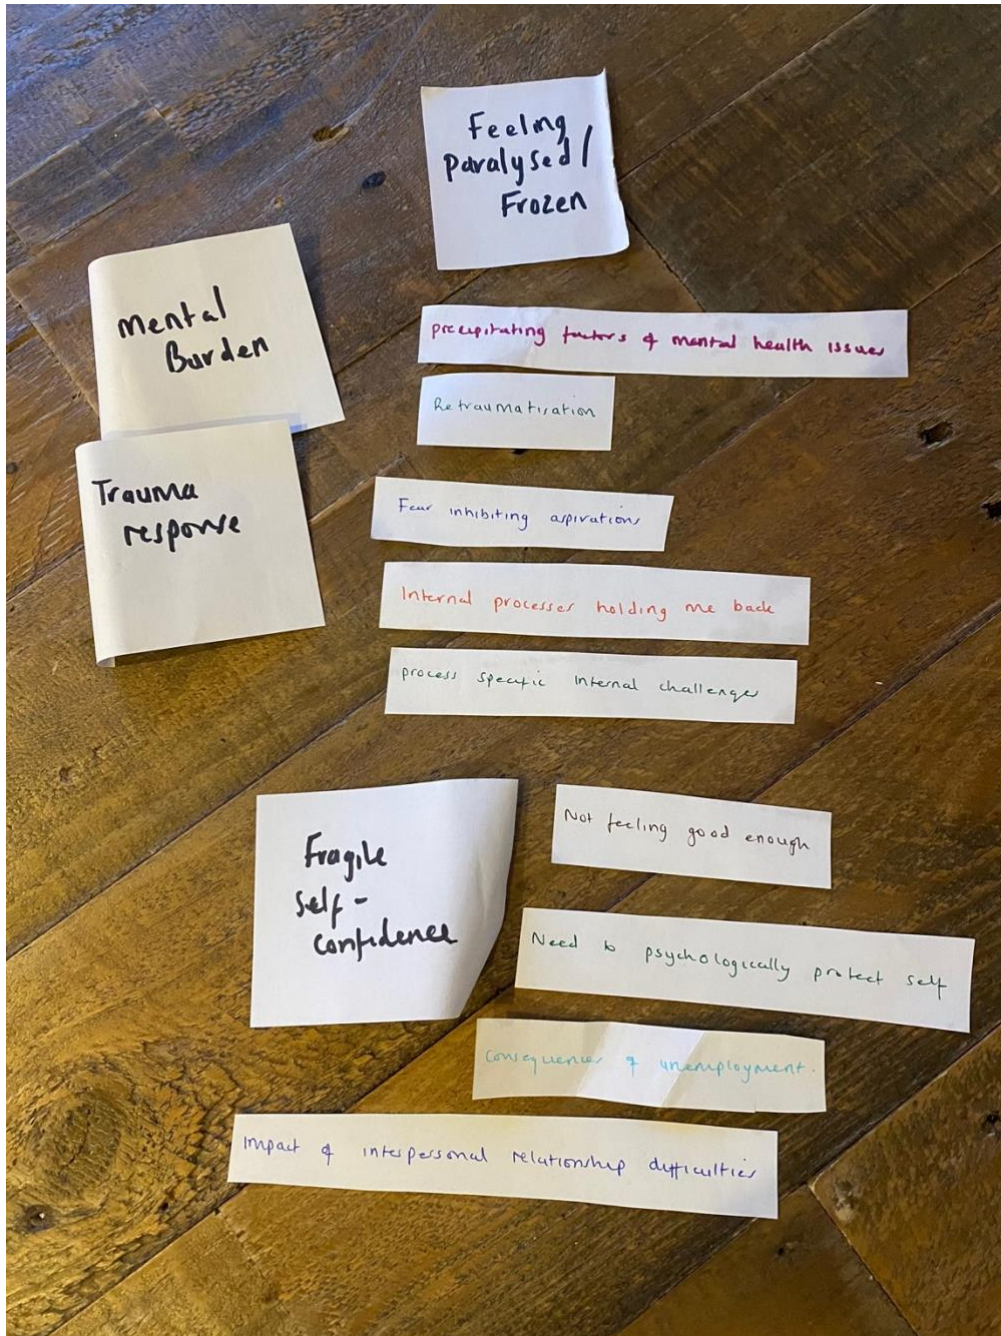 Feeling
Paralysed/
Frozen
Mental
Burden
precipitating factors of mental health issues
Retraumatisation
Trauma
response
Fear inhibiting aspirations
Internal processes holding me back
process specific internal challenges
Fragile
Self-
confidence
Not feeling good enough
Need to psychologically protect self
Consequences of unemployment.
Impact of interpersonal relationship difficulties